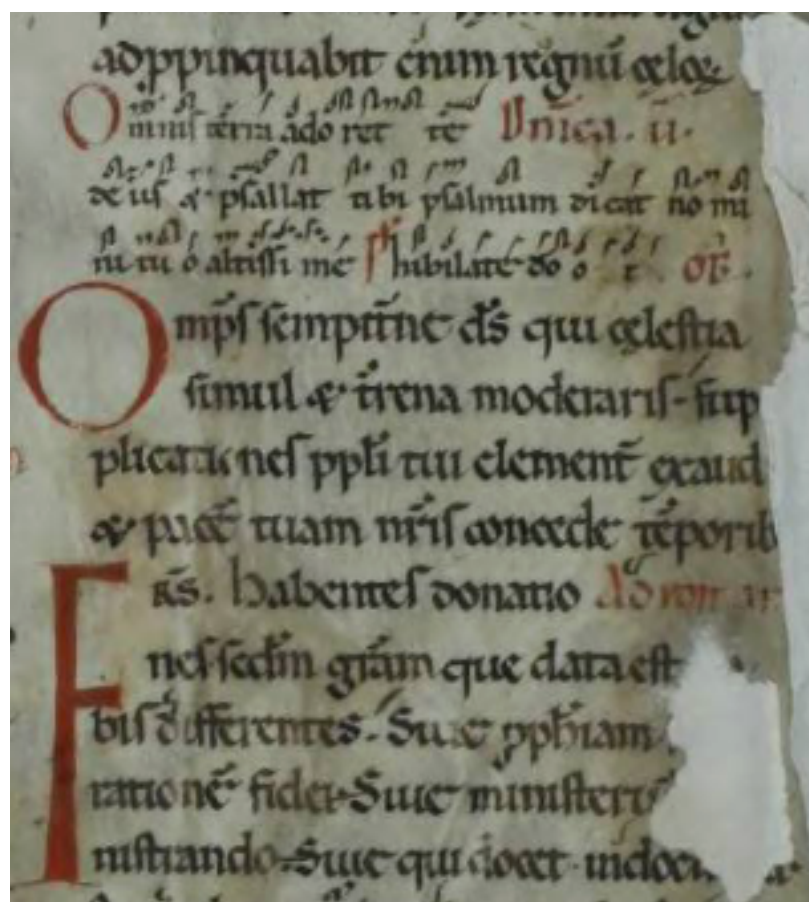 adppinquabit enim regnū celoꝝ
Omnis terra ado ret te Dnica . ii .
de us & psallat tibi psalmum dicat no mi
ni tu o altissi me ps Iubilate do o t or̄ .
Omps sempit̄ne ds̄ qui celestia
simul & t̄rena moderaris . sup
plicationes ppli tui clement̄ exaud
& pacē tuam nr̄is concede tēporib
Frs̄ . habentes donatio Ad roman
nes scdm grām que data est
bis differentes . Siue pphiam
rationē fidei . Siue ministeriū
nistrando . Siue qui docet . in doc